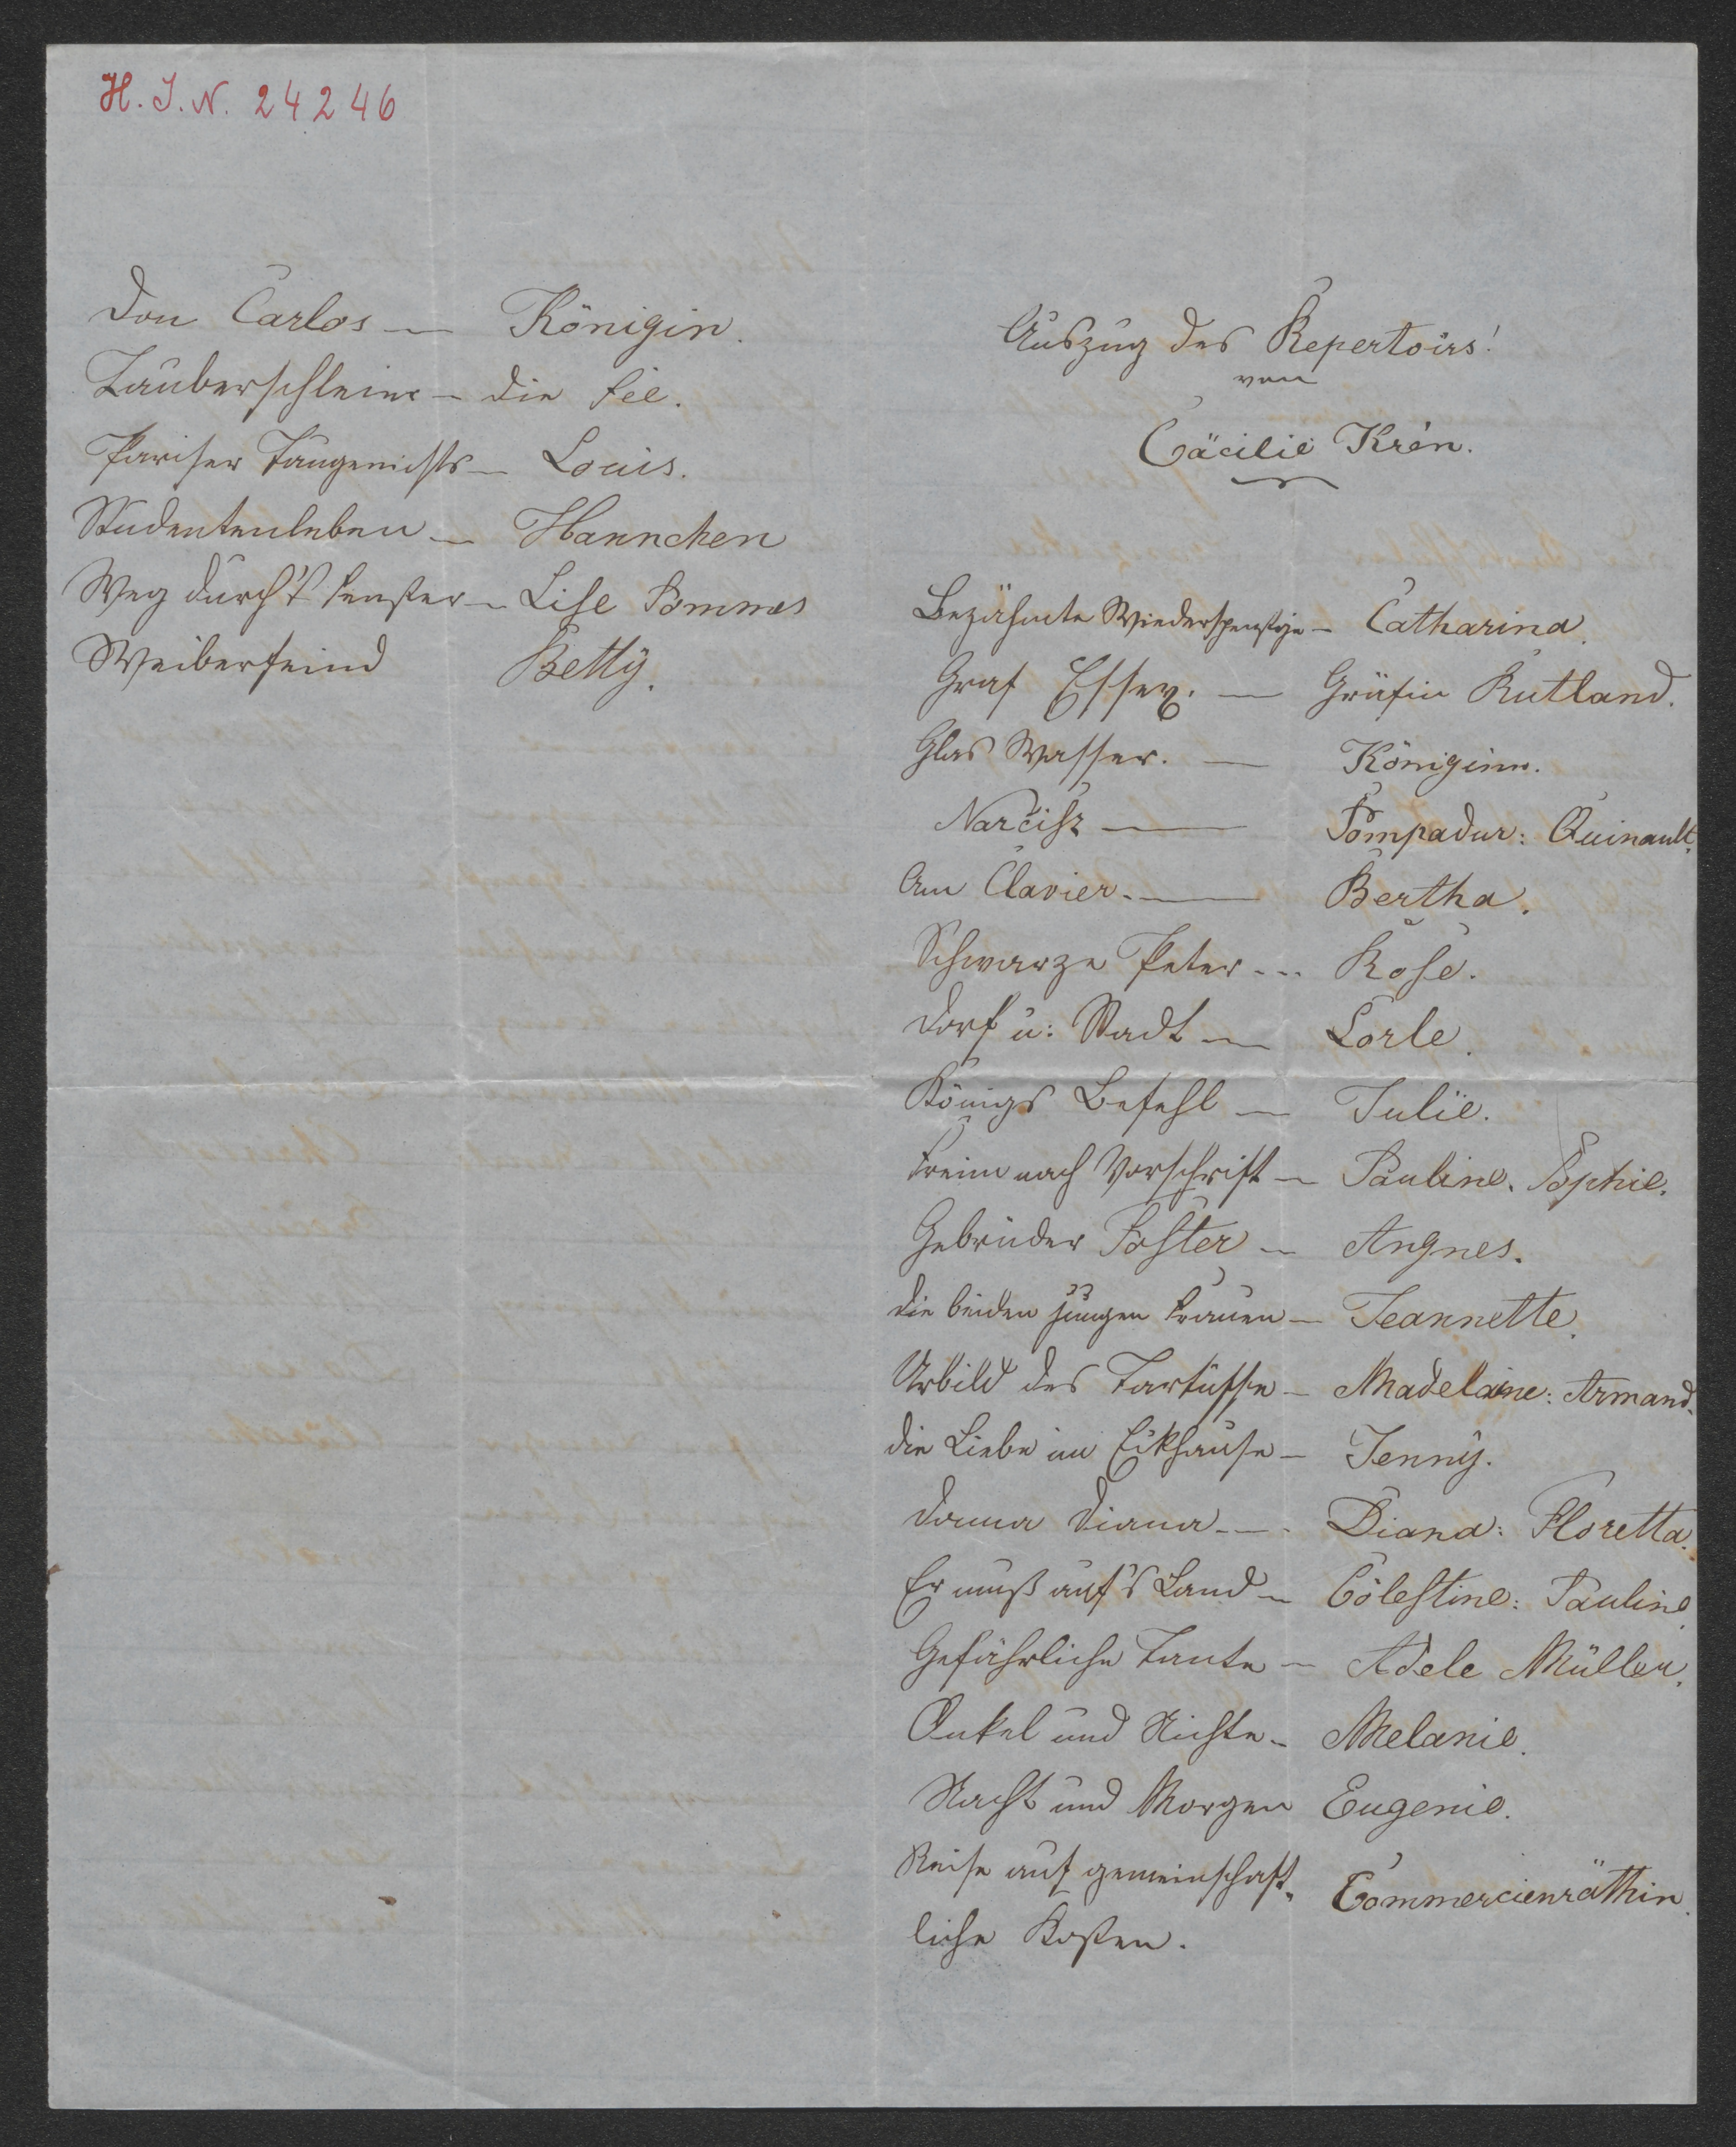 H. I. N. 24246
Don Carlos — Königin.
Zauberschleier — die Fee.
Pariser Taugenichts — Louis.
Studentenleben — Hannchen
Weg durch's Fenster — Lise Pommes
Weiberfeind Betty.
Auszug des Repertoirs!
von
Cäcilie Krén.
Bezähmte Wiederspenstige — Catharina.
Graf Essex. — Gräfin Rutland.
Glas Wasser. — Königinn.
Narciß — Pompadur: Quinault.
Am Clavier. — Bertha.
Schwarze Peter — Rose.
Dorf u: Stadt — Lorle.
Königs Befehl — Julie.
Freien nach Vorschrift — Pauline. Sophie.
Gebrüder Foster — Angnes.
die beiden jungen Frauen — Jeannette.
Urbild des Tartüffe — Madelaine: Armand.
die Liebe im Eckhause — Jenny.
Donna Diana — Diana: Floretta.
Er muß auf's Land — Cölestine: Pauline
Gefährliche Tante — Adele Müller.
Onkel und Nichte — Melanie.
Nacht und Morgen Eugenie.
Reise auf gemeinschaft- Commercienräthin.
liche Kosten.